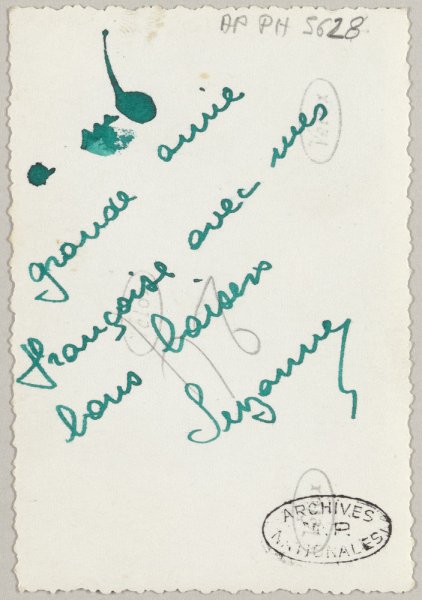 AP PH 5628
grande amie
Françoise avec mes
bons baisers
Suzanne
ARCHIVES
M.P.
NATIONALES